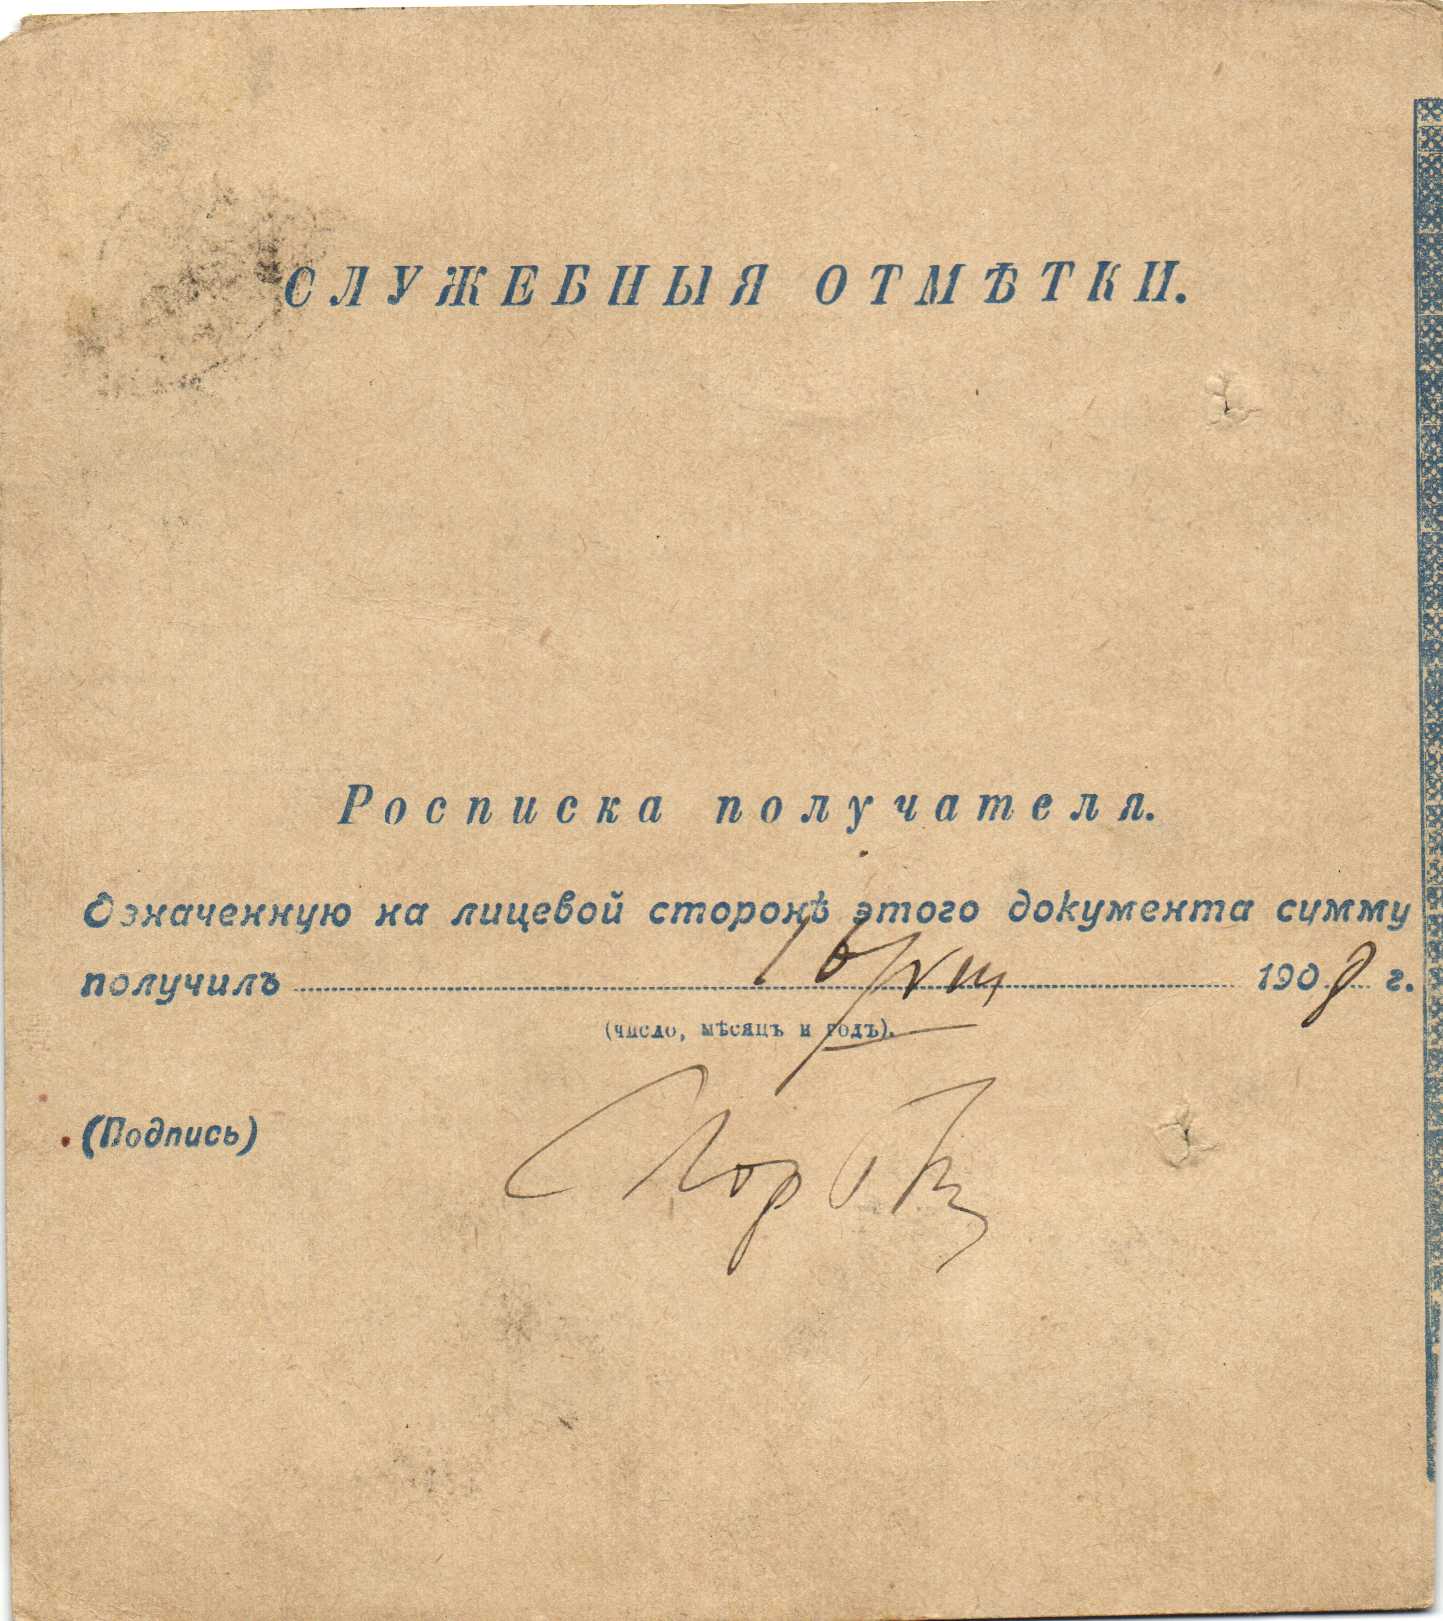 СЛУЖЕБНЫЯ ОТМѢТКИ.
Росписка получателя.
Означенную на лицевой сторонѣ этого документа сумму
получилъ 16/VIII 1908 г.
(число, мѣсяцъ и годъ).
(Подпись)